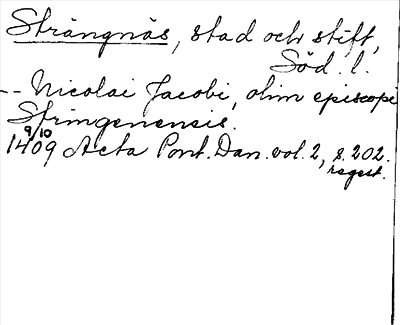 Strängnäs, stad och stift,
Söd. l.
-- Nicolai Jacobi, olim episcopi
Stringenensis.
9/10
1409 Acta Pont. Dan. vol. 2, s. 202.
regest.